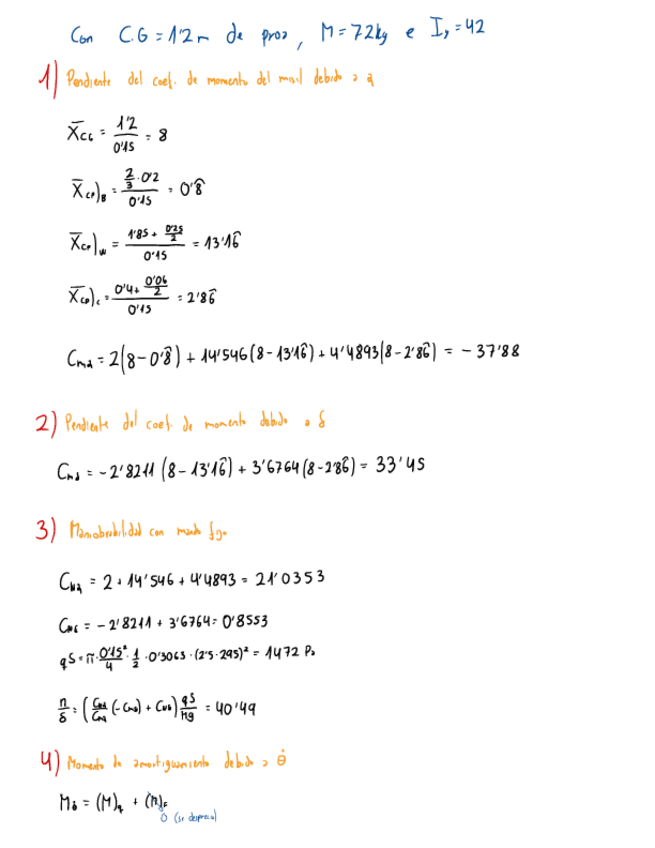 Con C.G = 1'2 m de proa, M = 72kg e Iy = 42
1) Pendiente del coef. de momento del misil debido a α
X̄CG = 1'2 / 0'15 = 8
X̄CP)B = (2/3 · 0'2) / 0'15 = 0'8̂
X̄CP)W = (1'85 + 0'25/2) / 0'15 = 13'16̂
X̄CP)C = (0'4 + 0'06/2) / 0'15 = 2'86̂
Cmα = 2(8 - 0'8̂) + 14'546(8 - 13'16̂) + 4'4893(8 - 2'86̂) = - 37'88
2) Pendiente del coef. de momento debido a δ
Cmδ = - 2'8211 (8 - 13'16̂) + 3'6764(8 - 2'86̂) = 33'45
3) Maniobrabilidad con mando fijo
CNα = 2 + 14'546 + 4'4893 = 21'0353
CNδ = - 2'8211 + 3'6764 = 0'8553
qS = π · 0'15²/4 · 1/2 · 0'3063 · (2'5 · 295)² = 1472 Pa
n/δ = (CNα/Cmα (-Cmδ) + CNδ) qS/Mg = 40'49
4) Momento de amortiguamiento debido a θ̇
Mθ̇ = (M)q +
0 (se desprecia)